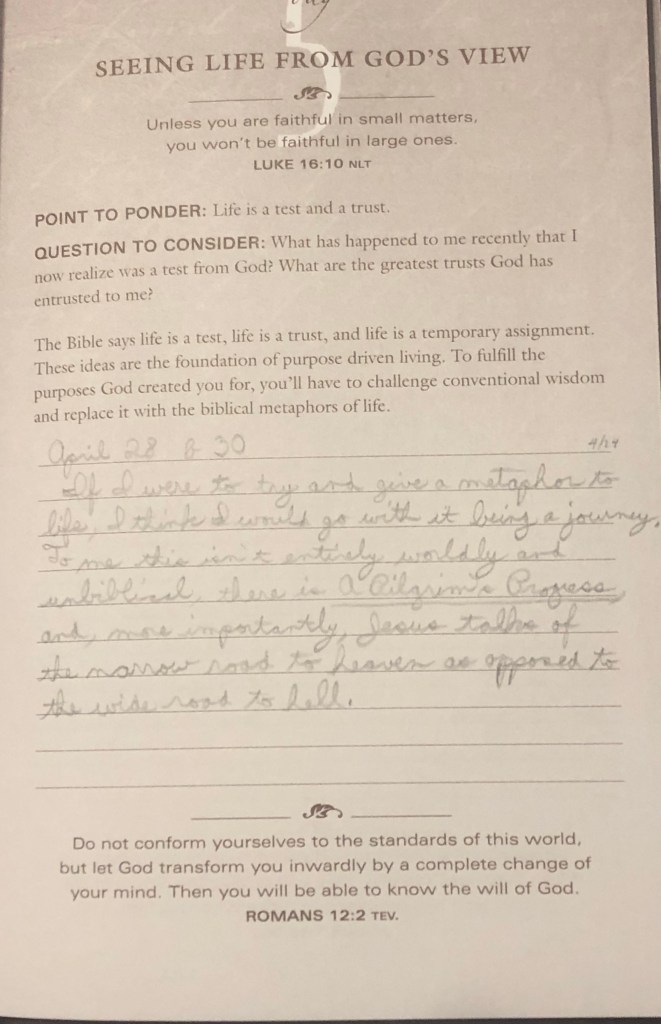 5
SEEING LIFE FROM GOD'S VIEW
Unless you are faithful in small matters,
you won't be faithful in large ones.
LUKE 16:10 NLT
POINT TO PONDER: Life is a test and a trust.
QUESTION TO CONSIDER: What has happened to me recently that I
now realize was a test from God? What are the greatest trusts God has
entrusted to me?
The Bible says life is a test, life is a trust, and life is a temporary assignment.
These ideas are the foundation of purpose driven living. To fulfill the
purposes God created you for, you'll have to challenge conventional wisdom
and replace it with the biblical metaphors of life.
April 28 & 30 4/29
If I were to try and give a metaphor to
life, I think I would go with it being a journey.
To me this isn't entirely worldly and
unbiblical, there is A Pilgrim's Progress,
and, more importantly, Jesus talks of
the narrow road to heaven as opposed to
the wide road to hell.
Do not conform yourselves to the standards of this world,
but let God transform you inwardly by a complete change of
your mind. Then you will be able to know the will of God.
ROMANS 12:2 TEV.